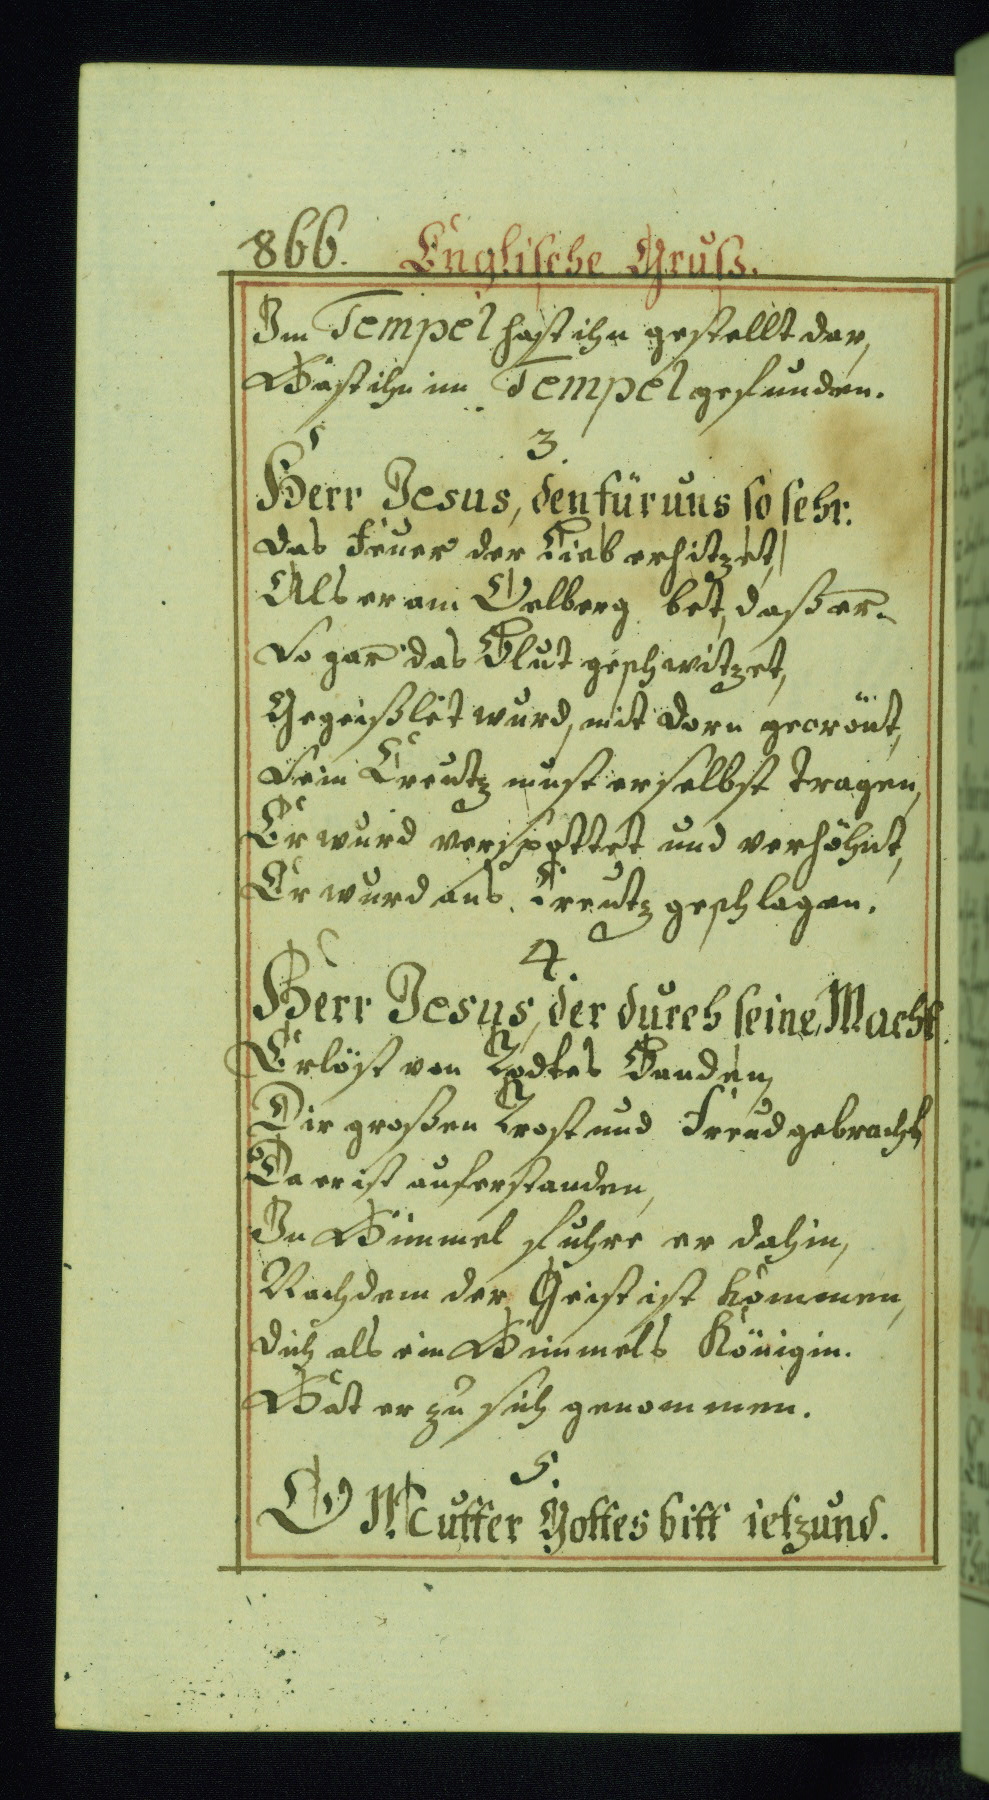 866. Englische Gruß.
Im Tempel hast ihn gestellt dar,
Hast ihn im Tempel gefunden.
3.
Herr Jesus, den für uns so sehr.
Das Feuer der Lieb erhitzet,
Als er am Oelberg bet, daß er.
So gar das Blut geschwitzet,
Gegeißlet wurd, mit Dorn gecrönt,
Sein Creutz must er selbst tragen,
Er wurd verspottet und verhöhnt,
Er wurd ans Creutz geschlagen.
4.
Herr Jesus, der durch seine Macht.
Erlöst von Todtes Banden,
Dir großen Trost und Freud gebracht,
Da er ist auferstanden,
In Himmel fuhre er dahin,
Nachdem der Geist ist kommen,
Dich als ein Himmels Königin.
Hat er zu sich genommen.
5.
O Mutter Gottes bitt ietzund.